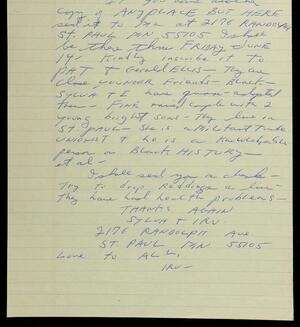 If you have another
copy of ANY PLACE BUT HERE
send it to me at 2176 RANDOLPH,
ST. PAUL MN 55105 I shall
be there thru FRIDAY JUNE
19. Kindly inscribe it to
PAT & Gerald ELLIS - They are
close younger Friends - Black -
SYLVIA & I have quasi-adopted
them - FINE married couple with 2
young bright sons - They live in
ST PAUL - She is a militant Trade
UNIONIST & he is a Knowledgeable
person on Black HISTORY -
et al -
I shall send you a check -
Try to drop Reddings a line -
They have had health problems -
THANKS AGAIN
SYLVIA & IRV
2176 RANDOLPH AVE.
ST. PAUL MN 55105
Love to ALL
IRV -